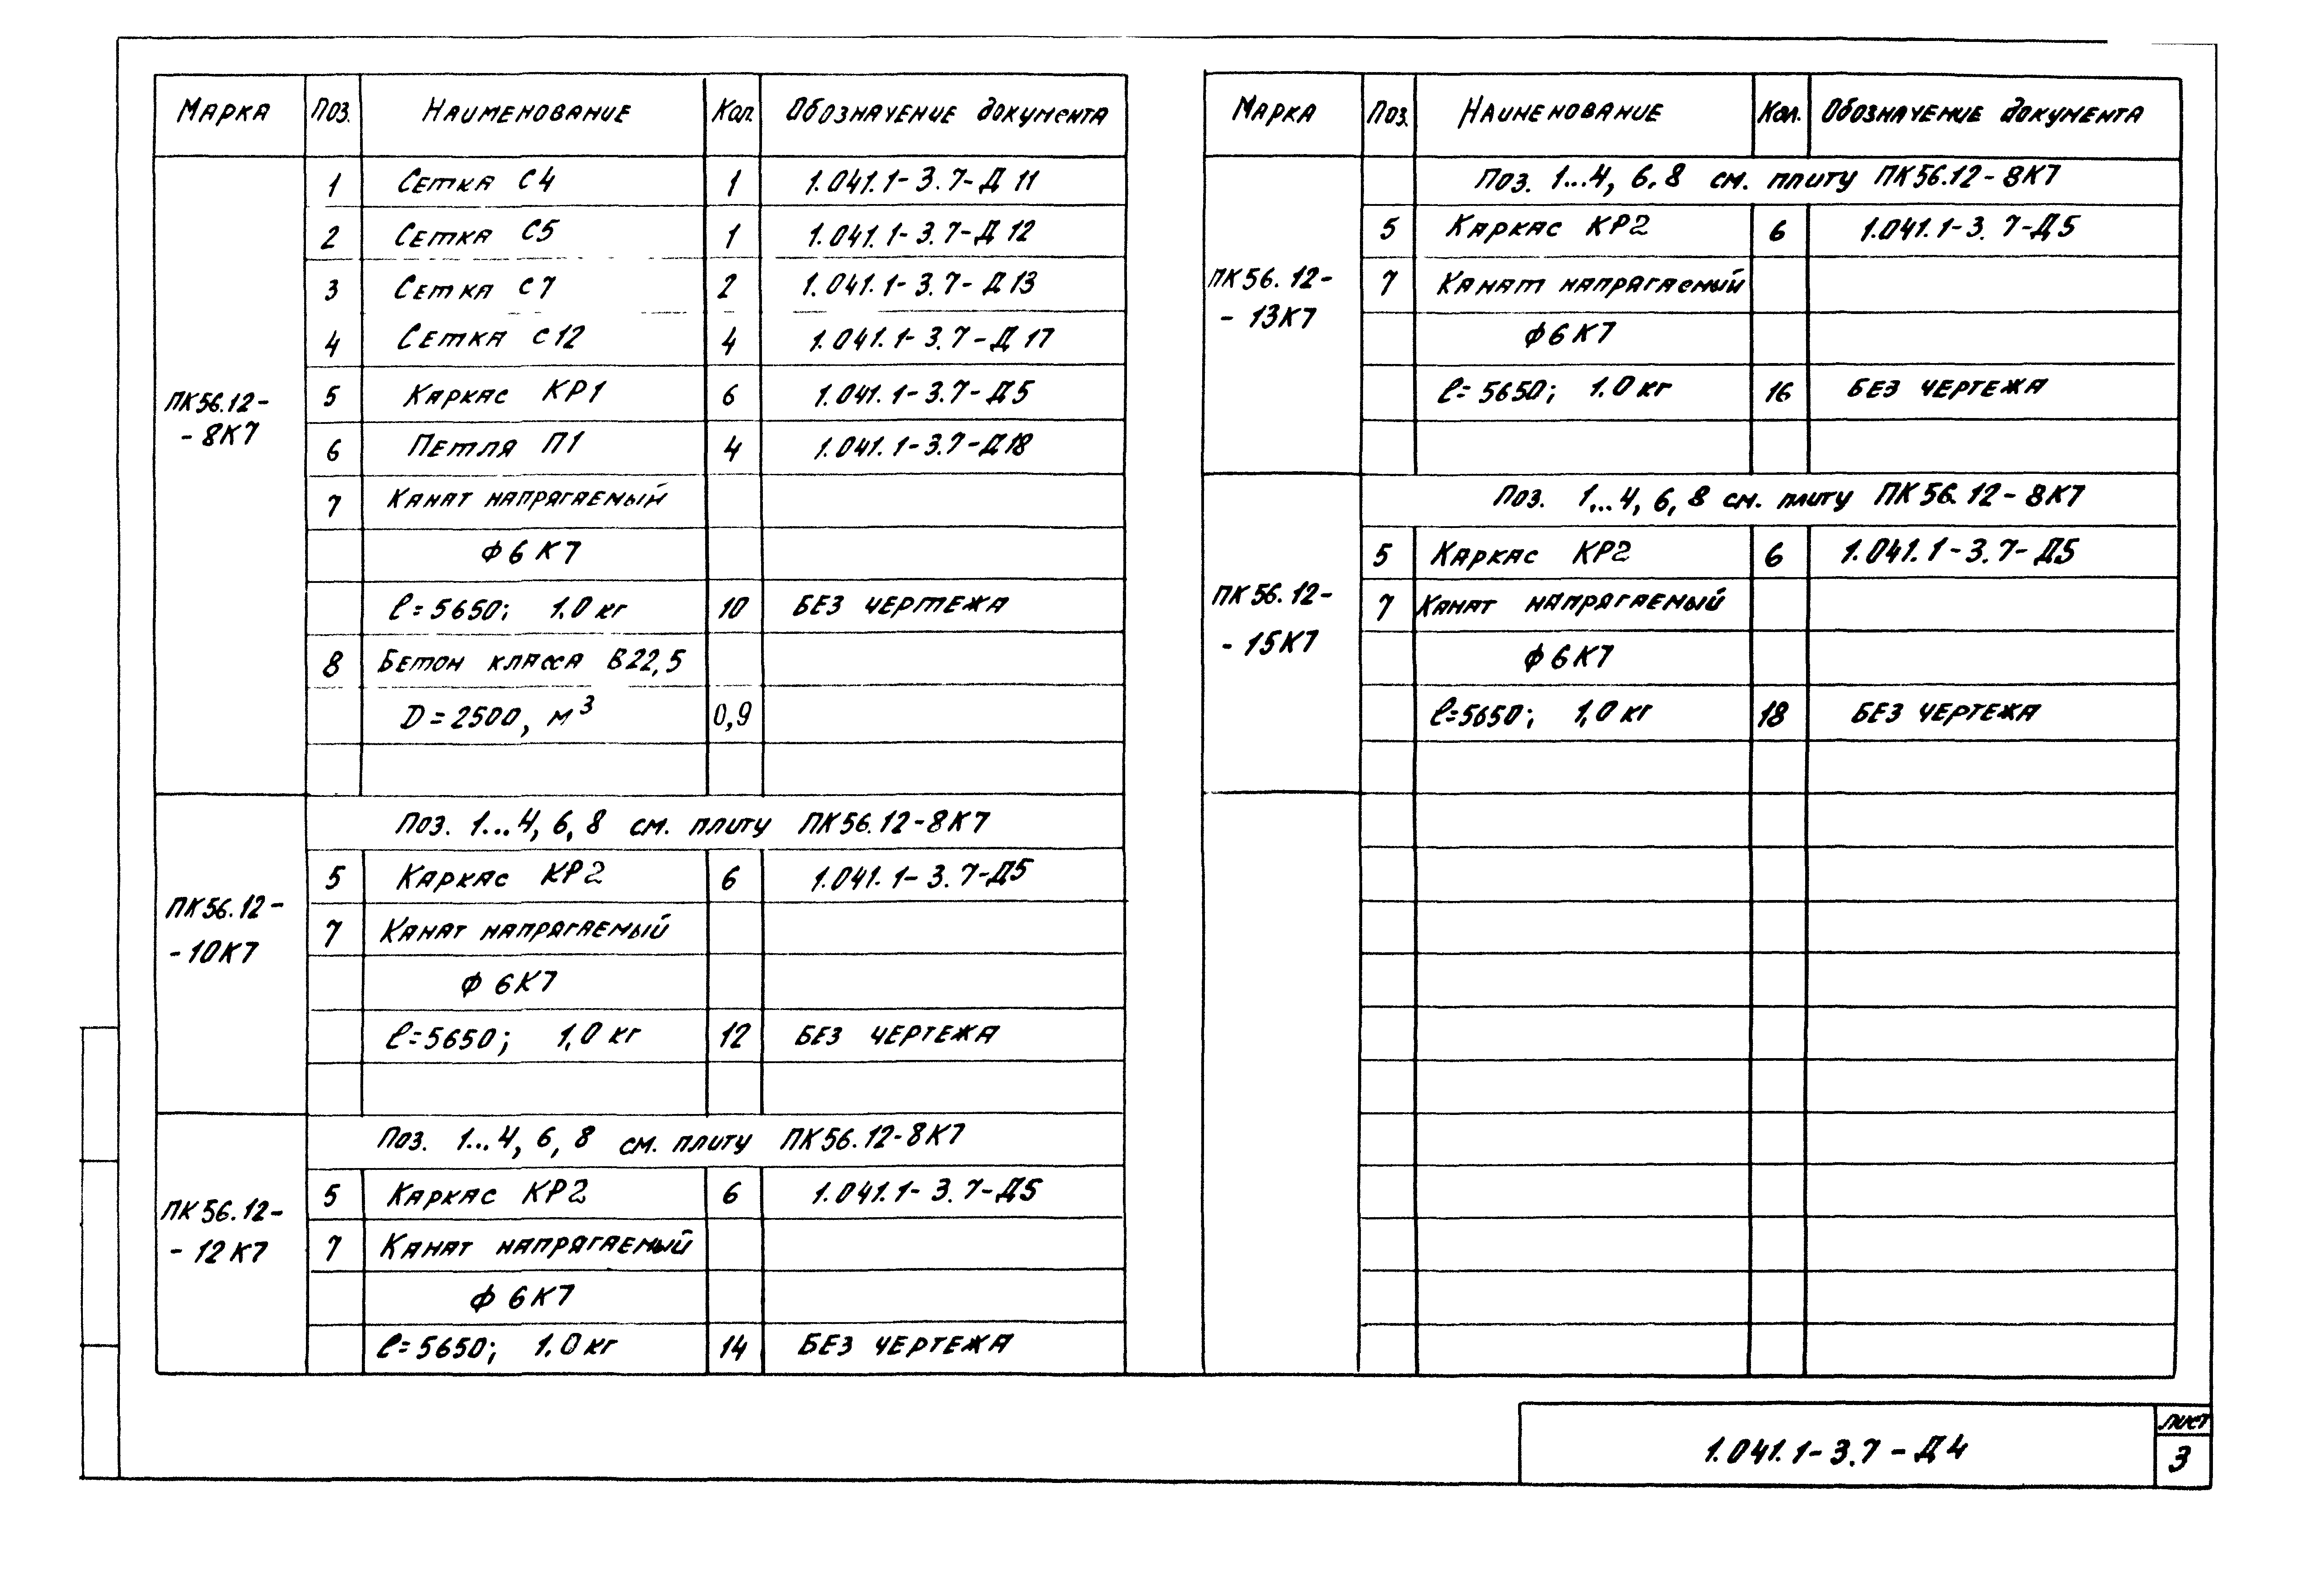 Марка Поз. Наименование Кол. Обозначение документа
1 Сетка С4 1 1.041.1-3.7-Д11
2 Сетка С5 1 1.041.1-3.7-Д12
3 Сетка С7 2 1.041.1-3.7-Д13
4 Сетка С12 4 1.041.1-3.7-Д17
ПК56.12- 5 Каркас КР1 6 1.041.1-3.7-Д5
-8К7 6 Петля П1 4 1.041.1-3.7-Д18
7 Канат напрягаемый
Ф6К7
ℓ=5650; 1.0кг 10 без чертежа
8 Бетон класса В22,5
D=2500, м³ 0,9
Поз. 1...4, 6, 8 см. плиту ПК56.12-8К7
5 Каркас КР2 6 1.041.1-3.7-Д5
ПК56.12- 7 Канат напрягаемый
-10К7
Ф6К7
ℓ=5650; 1,0кг 12 без чертежа
Поз. 1...4, 6, 8 см. плиту ПК56.12-8К7
ПК56.12- 5 Каркас КР2 6 1.041.1-3.7-Д5
-12К7 7 Канат напрягаемый
Ф6К7
ℓ=5650; 1.0кг 14 без чертежа
Марка Поз. Наименование Кол. Обозначение документа
Поз. 1...4, 6, 8 см. плиту ПК56.12-8К7
5 Каркас КР2 6 1.041.1-3.7-Д5
ПК56.12- 7 Канат напрягаемый
-13К7 Ф6К7
ℓ=5650; 1.0кг 16 без чертежа
Поз. 1...4, 6, 8 см. плиту ПК56.12-8К7
5 Каркас КР2 6 1.041.1-3.7-Д5
ПК56.12- 7 Канат напрягаемый
-15К7 Ф6К7
ℓ=5650; 1,0кг 18 без чертежа
1.041.1-3.7-Д4
лист
3